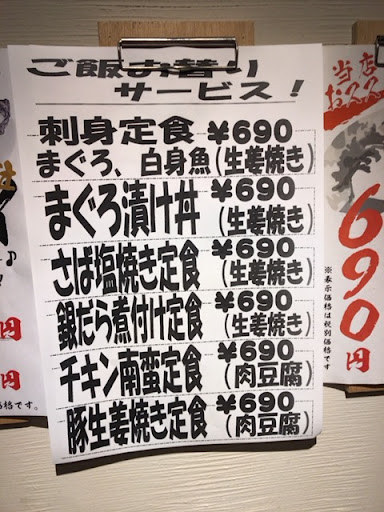 ご飯お替り
サービス！
刺身定食 ￥690
まぐろ、白身魚(生姜焼き)
まぐろ漬け丼 ￥690
(生姜焼き)
さば塩焼き定食 ￥690
(生姜焼き)
銀だら煮付け定食 ￥690
(生姜焼き)
チキン南蛮定食 ￥690
(肉豆腐)
豚生姜焼き定食 ￥690
(肉豆腐)
当店
おスス
690円
※表示価格は税別価格です
円
円
価格です。